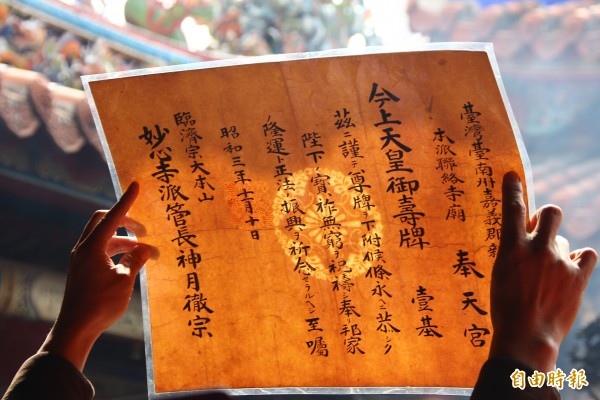 臺灣臺南州嘉義郡新
本派聯絡寺廟 奉天宮
今上天皇御壽牌 壹基
茲ニ謹テ尊牌ヲ下附候條永ニ恭シク
陛下ノ寶祚無窮ヲ祀禱シ奉リ邦家
ノ隆運ト正法ノ振興ヲ祈念セラルヘシ至囑
昭和三年十一月十日
臨濟宗大本山
妙心寺派管長神月徹宗
自由時報